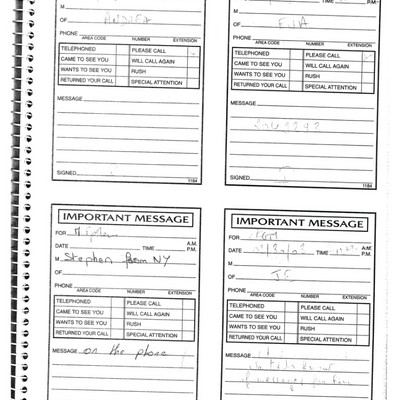 M
OF ANDREA
PHONE
AREA CODE NUMBER EXTENSION
TELEPHONED PLEASE CALL
CAME TO SEE YOU WILL CALL AGAIN
WANTS TO SEE YOU RUSH
RETURNED YOUR CALL SPECIAL ATTENTION
MESSAGE
SIGNED
1184
P.M.
M
OF
PHONE
AREA CODE NUMBER EXTENSION
TELEPHONED PLEASE CALL
CAME TO SEE YOU WILL CALL AGAIN
WANTS TO SEE YOU RUSH
RETURNED YOUR CALL SPECIAL ATTENTION
MESSAGE
SIGNED
1184
IMPORTANT MESSAGE
FOR
A.M.
DATE TIME P.M.
M Stephen from NY
OF
PHONE
AREA CODE NUMBER EXTENSION
TELEPHONED PLEASE CALL
CAME TO SEE YOU WILL CALL AGAIN
WANTS TO SEE YOU RUSH
RETURNED YOUR CALL SPECIAL ATTENTION
MESSAGE on the phone
IMPORTANT MESSAGE
FOR
A.M.
DATE TIME P.M.
M
OF JE
PHONE
AREA CODE NUMBER EXTENSION
TELEPHONED PLEASE CALL
CAME TO SEE YOU WILL CALL AGAIN
WANTS TO SEE YOU RUSH
RETURNED YOUR CALL SPECIAL ATTENTION
MESSAGE